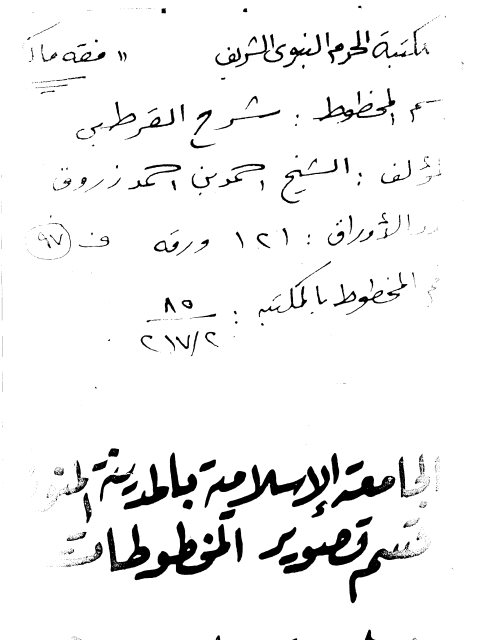 مكتبة الحرم النبوي الشريف " فقه مالك
سم المخطوط : شرح القرطبي
لمؤلف : الشيخ احمد بن احمد زروق
دد الأوراق : ١٢١ ورقه ف ٩٧
قم المخطوط بالمكتبه : ٨٥
٢١٧/٢
الجامعة الإسلامية بالمدينة المنورة
قسم تصوير المخطوطات